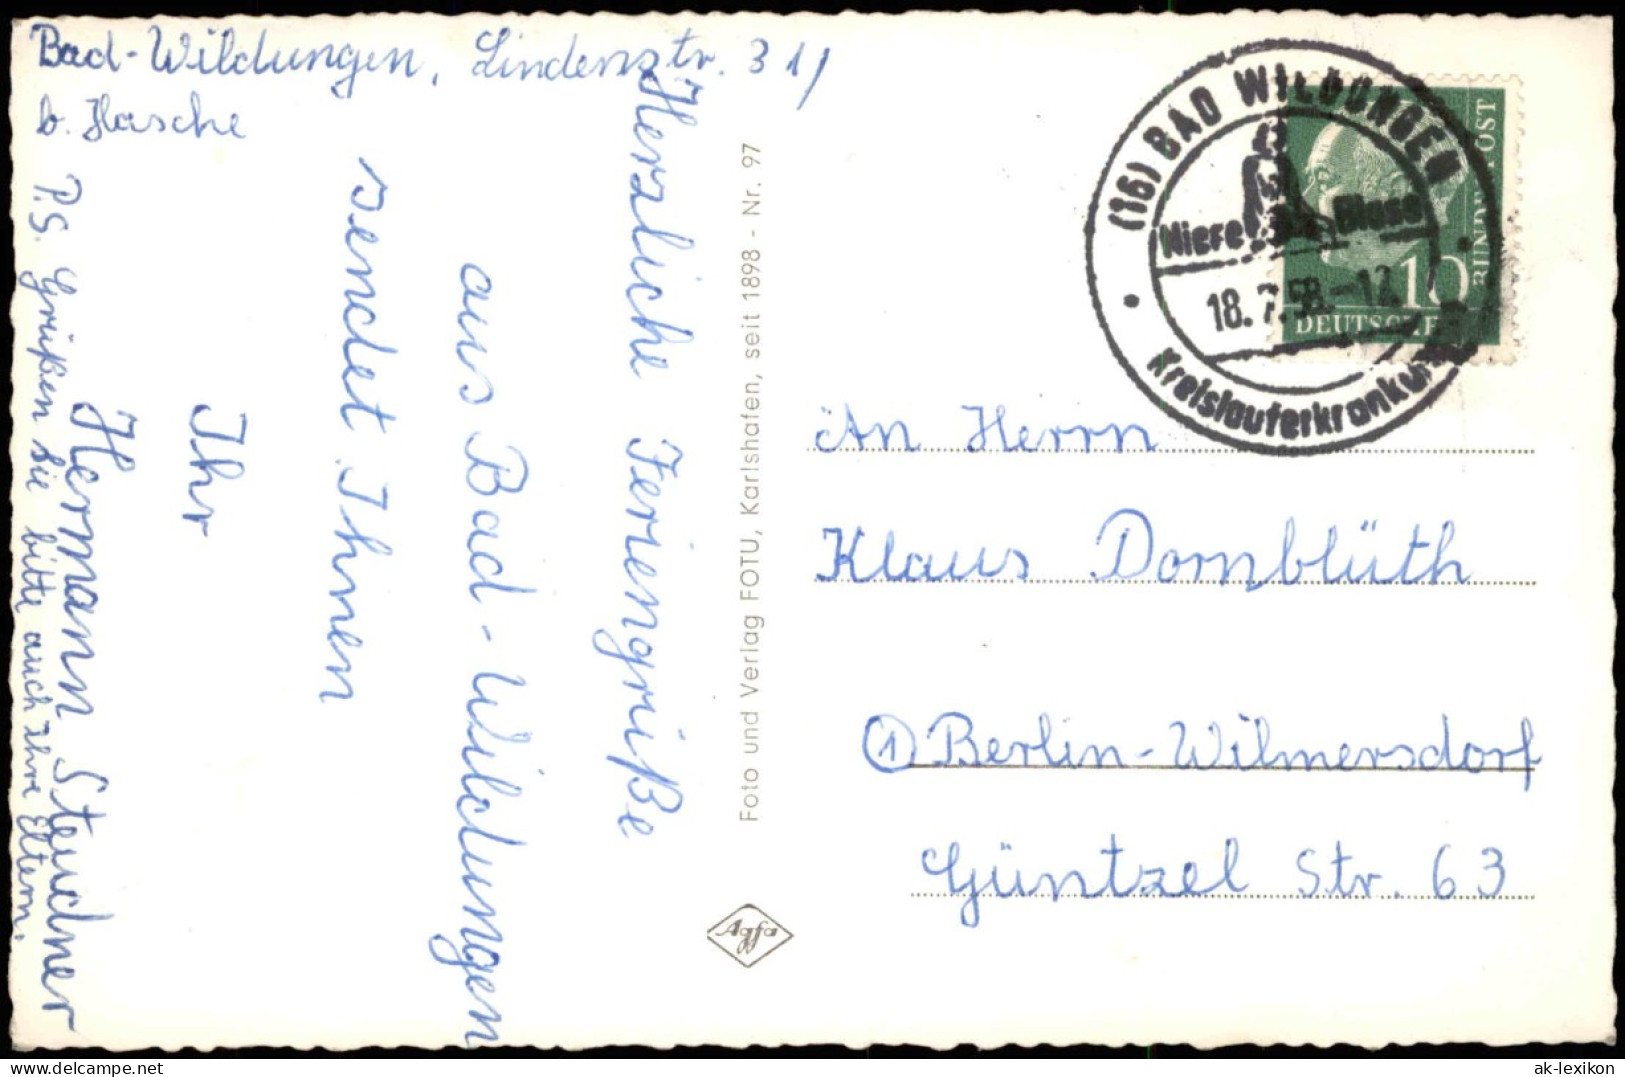 Bad-Wildungen, Lindenstr. 31/
b. Hasche
Herzliche Feriengrüße
aus Bad-Wildungen
sendet Ihnen
Ihr
Hermann Steudner
P.S. Grüßen sie bitte auch Ihre Eltern.
Foto und Verlag FOTU, Karlshafen, seit 1898 - Nr. 97
Agfa
(16) BAD WILDUNGEN
Niere Blase
18.7.58.-12
Kreislauferkrankun
10
DEUTSCHE
BUNDESPOST
An Herrn
Klaus Dornblüth
① Berlin-Wilmersdorf
Güntzel Str. 63
delcampe.net
ak-lexikon